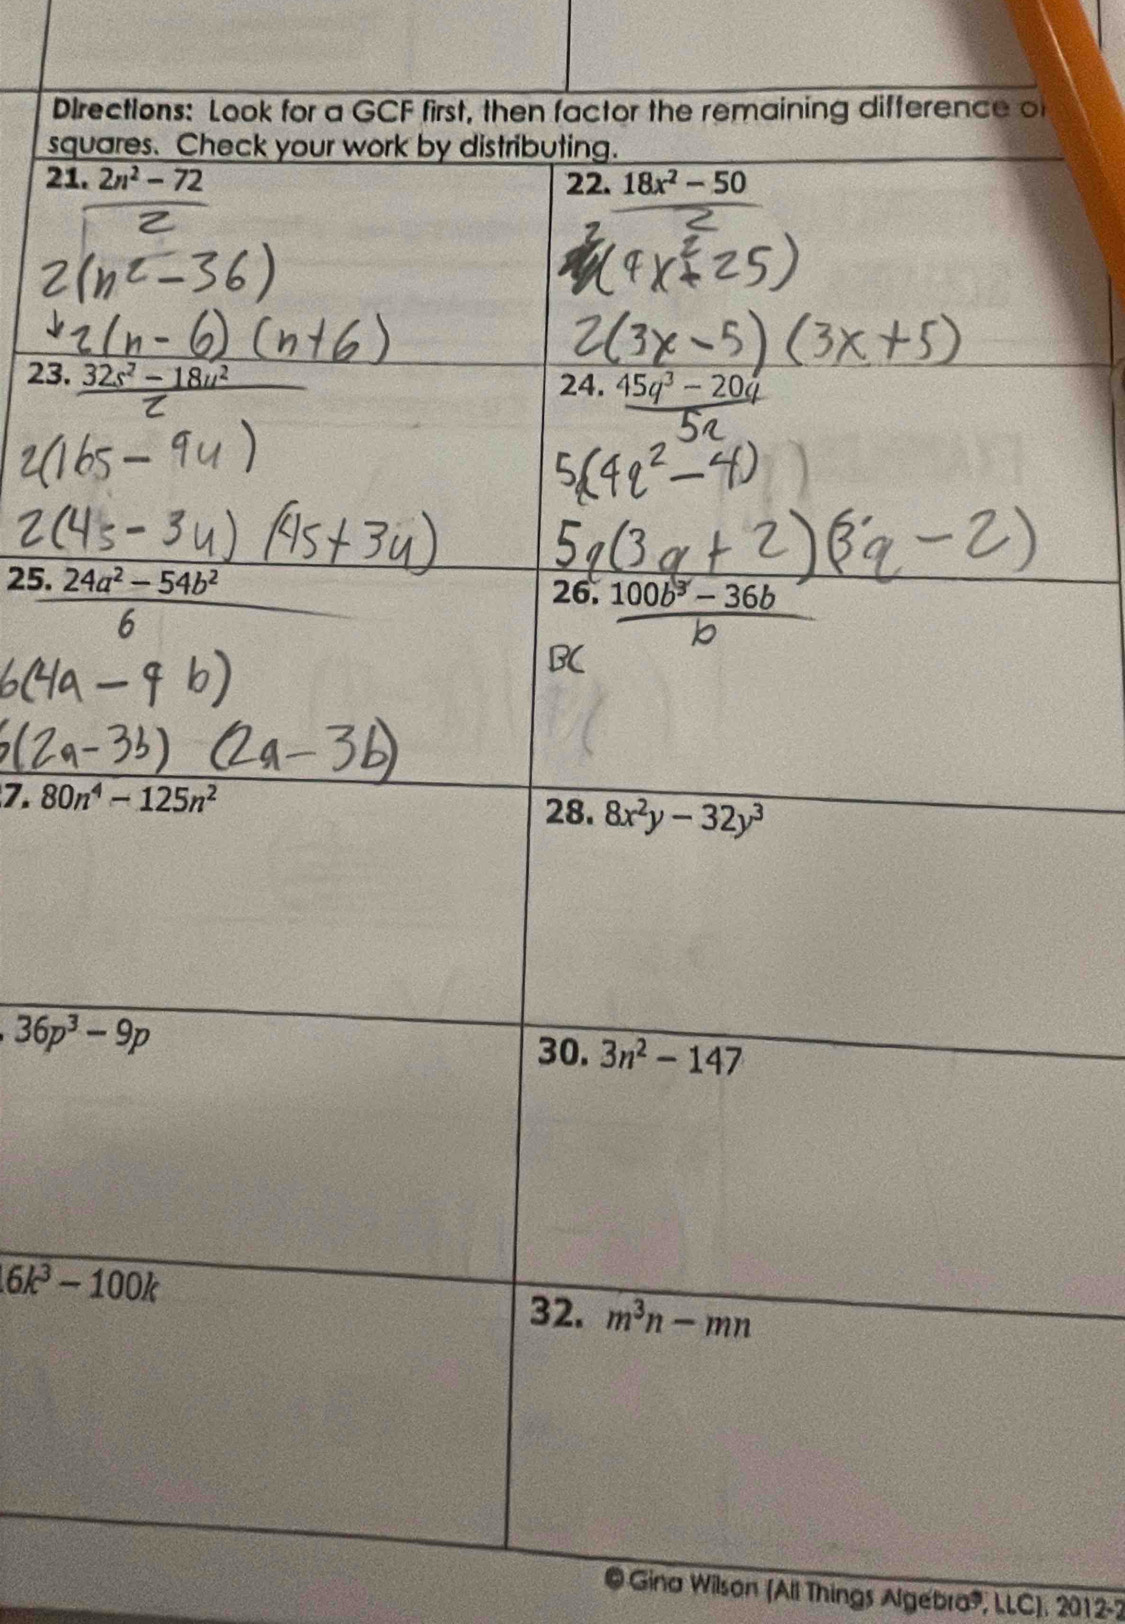 Directions: Look for a GCF first, then factor the remaining difference o
squares. Check your work by distributing.
21. 2n² − 72
2
2(n² − 36)
2(n − 6) (n + 6)
22. 18x² − 50
2
2(9x² − 25)
2(3x − 5) (3x + 5)
23. 32s² − 18u²
2
2(16s − 9u)
2(4s − 3u) (4s + 3u)
24. 45q³ − 20q
5q
5(9q² − 4)
5q(3q + 2)(3q − 2)
25. 24a² − 54b²
6
6(4a − 9b)
6(2a − 3b) (2a − 3b)
26. 100b³ − 36b
b
7. 80n⁴ − 125n²
28. 8x²y − 32y³
. 36p³ − 9p
30. 3n² − 147
16k³ − 100k
32. m³n − mn
© Gina Wilson (All Things Algebra®, LLC), 2012-2